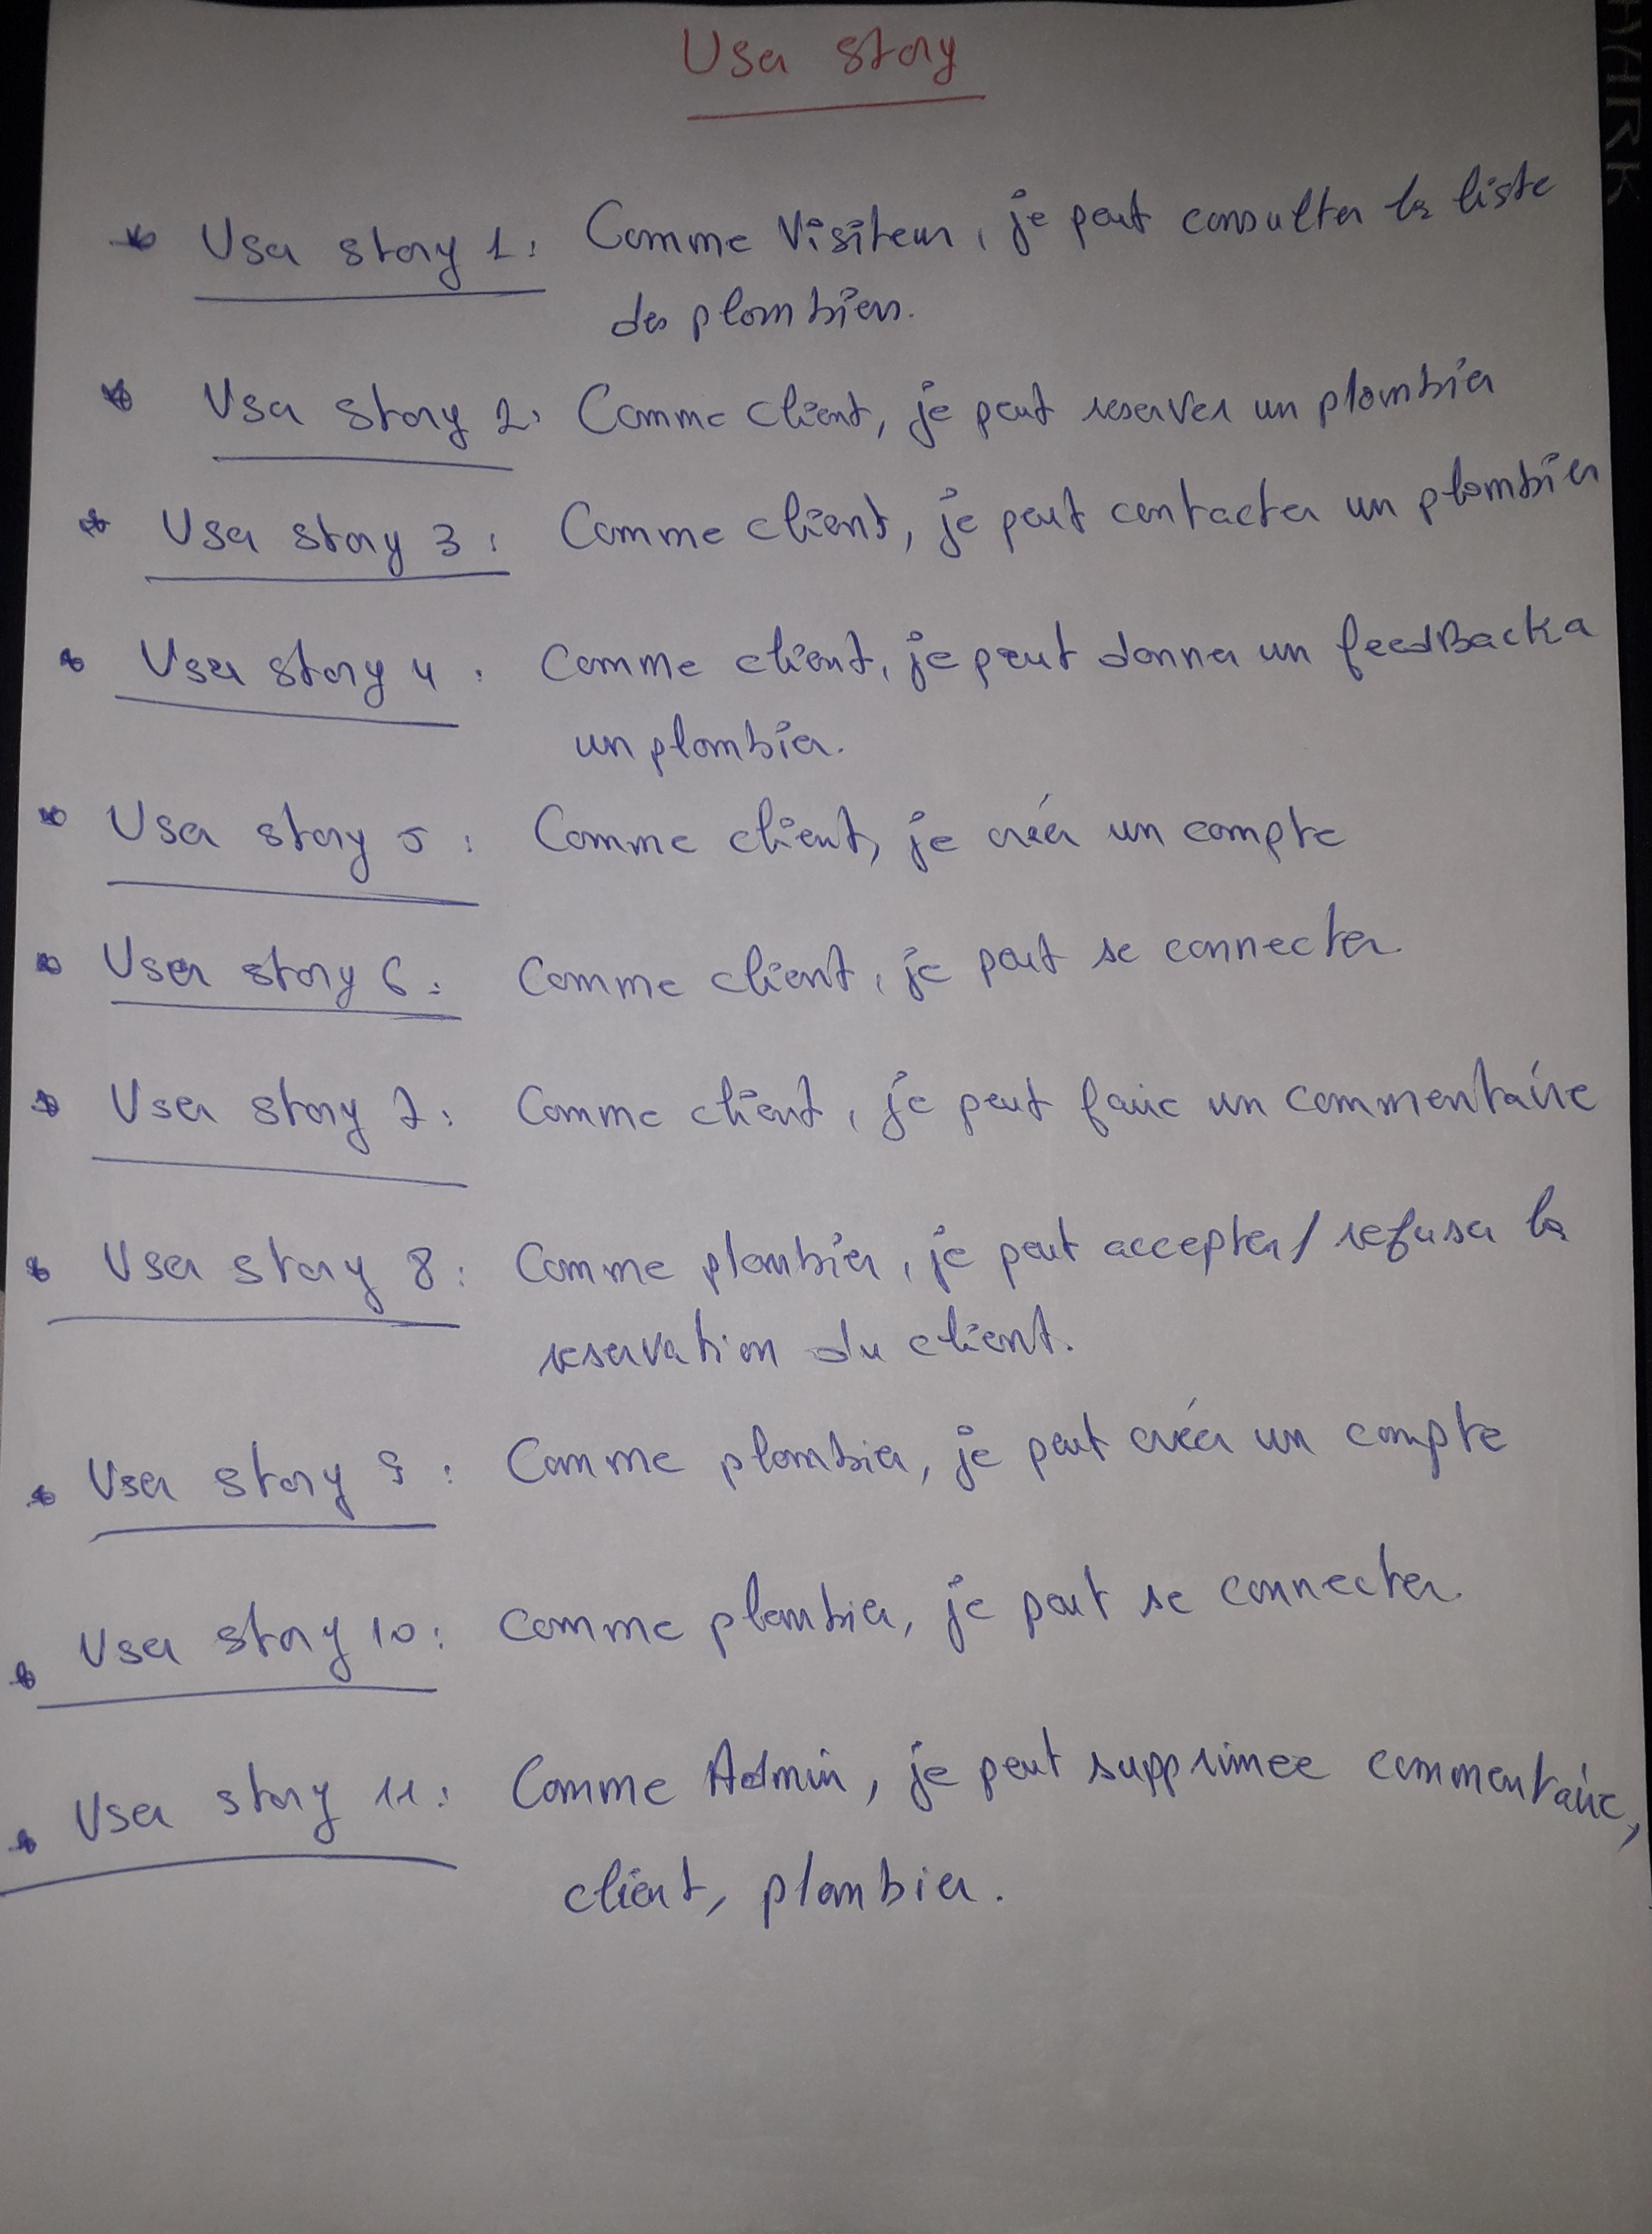 User story
* User story 1: Comme Visiteur, je peut consulter la liste
des plombiers.
* User story 2: Comme client, je peut reserver un plombier
* User story 3: Comme client, je peut contacter un plombier
* User story 4: Comme client, je peut donner un feedBack a
un plombier.
* User story 5: Comme client, je créer un compte
* User story 6: Comme client, je peut se connecter.
* User story 7: Comme client, je peut faire un commentaire
* User story 8: Comme plombier, je peut accepter/ refuser la
reservation du client.
* User story 9: Comme plombier, je peut créer un compte
* User story 10: Comme plombier, je peut se connecter.
* User story 11: Comme Admin, je peut supprimee commentaire,
client, plombier.